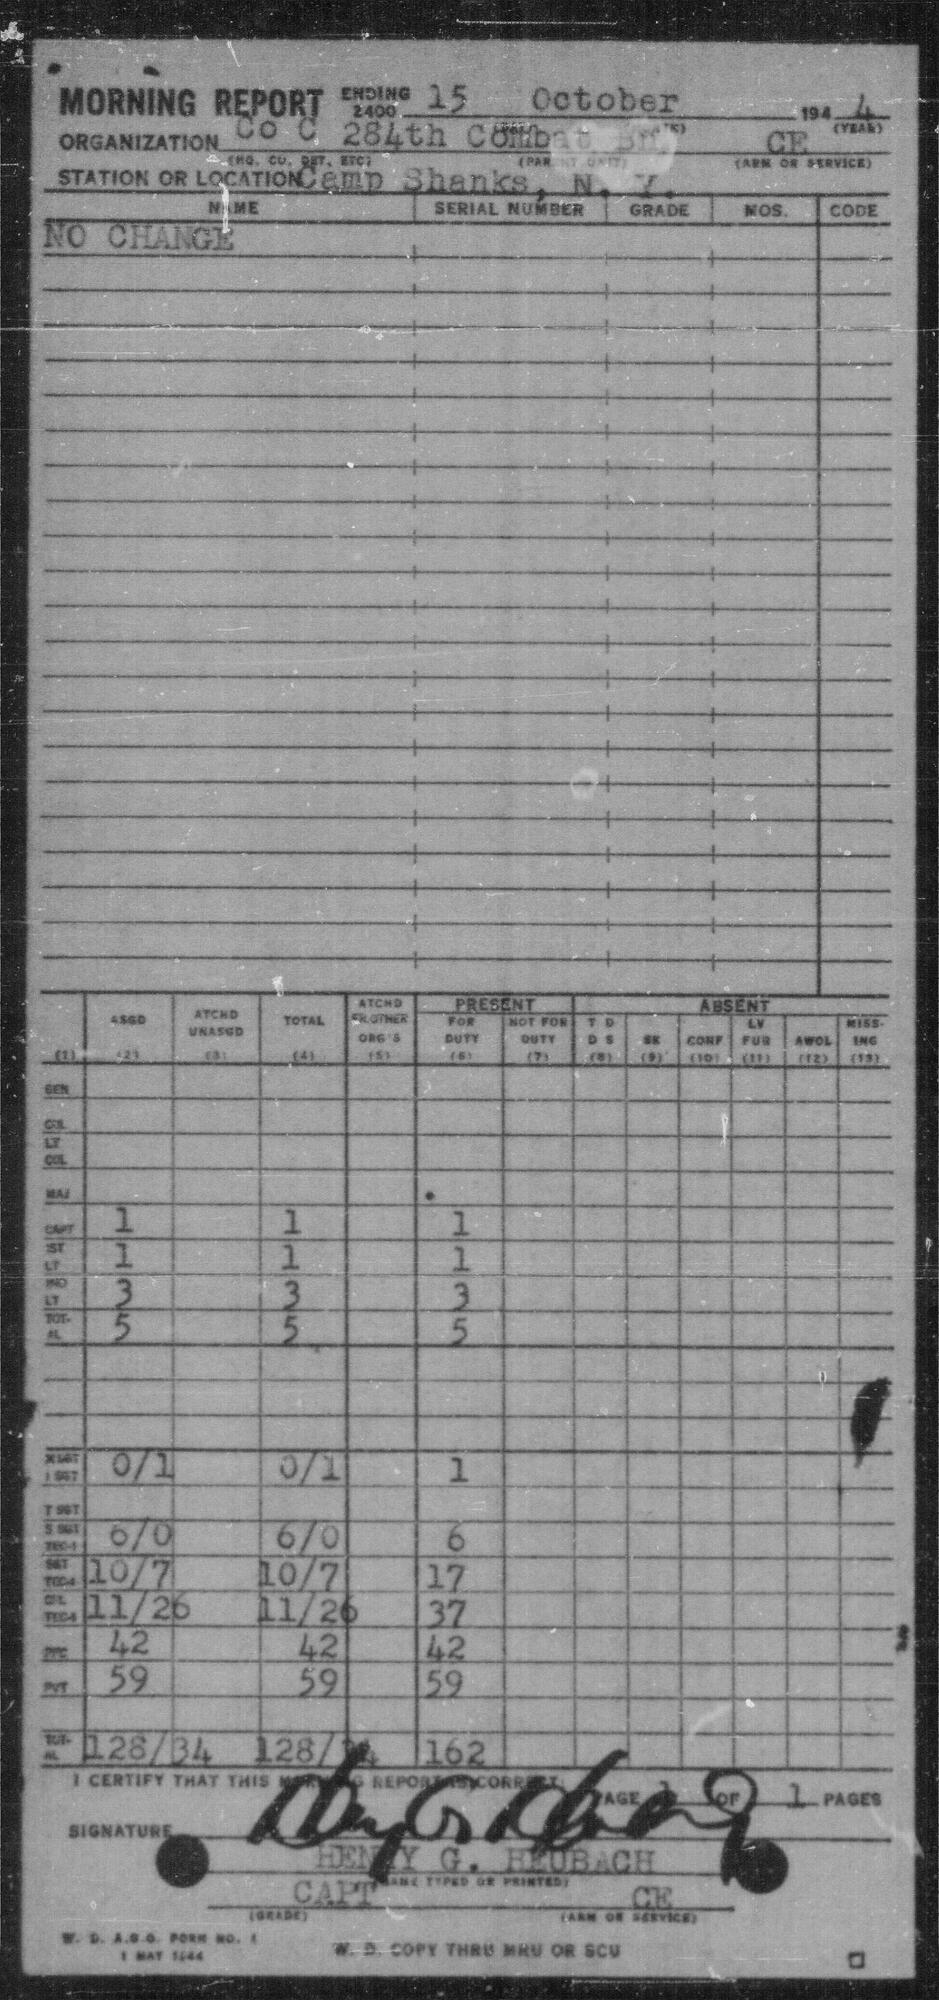 MORNING REPORT ENDING 2400 15 October 194 4
(YEAR)
ORGANIZATION Co C 284th Combat Bn, CE
(HQ. CO. DET. ETC) (PARENT UNIT) (ARM OR SERVICE)
STATION OR LOCATION Camp Shanks, N. Y.
NAME SERIAL NUMBER GRADE MOS. CODE
NO CHANGE
PRESENT ABSENT
ASGD ATCHD UNASGD TOTAL ATCHD FR.OTHER ORG'S FOR DUTY NOT FOR DUTY T D D S SK CONF LV FUR AWOL MISS-ING
(1) (2) (3) (4) (5) (6) (7) (8) (9) (10) (11) (12) (13)
GEN
COL
LT COL
MAJ
CAPT 1 1 1
1ST LT 1 1 1
2ND LT 3 3 3
TOT-AL 5 5 5
M SGT 1 SGT 0/1 0/1 1
T SGT
S SGT TEC-3 6/0 6/0 6
SGT TEC-4 10/7 10/7 17
CPL TEC-5 11/26 11/26 37
PFC 42 42 42
PVT 59 59 59
TOT-AL 128/34 128/34 162
I CERTIFY THAT THIS MORNING REPORT IS CORRECT. PAGE 1 OF 1 PAGES
SIGNATURE
HENRY G. HEUBACH
(NAME TYPED OR PRINTED)
CAPT CE
(GRADE) (ARM OR SERVICE)
W. D. A.G.O. FORM NO. 1
1 MAY 1944
W. D. COPY THRU MRU OR SCU